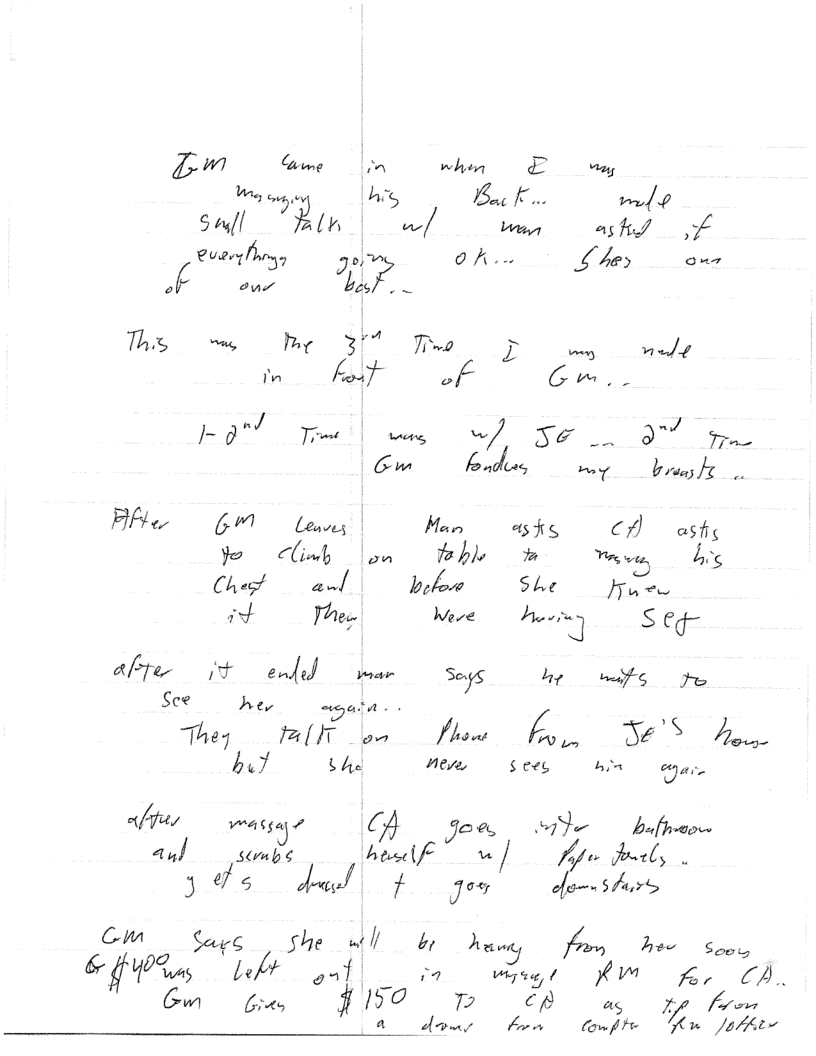 GM came in when I was
massaging his Back... made
small talk w/ man asked if
everythings going OK... Shes one
of our best...
This was the 3rd Time I was nude
in front of GM...
1-2nd Time was w/ JE ... 2nd Time
GM fondles my breasts..
After GM Leaves Man asks CA asks
to climb on table to massage his
Chest and before She Knew
it They Were having Sex
after it ended man says he wants to
see her again...
They talk on Phone from JE's house
but she never sees him again
after massage CA goes into bathroom
and scrubs herself w/ Paper Towels.
gets dressed + goes downstairs
GM says she will be hearing from her soon
$400 was left out in massage RM for CA..
GM Gives $150 To CA as tip from
a drawer from computer Rm /office